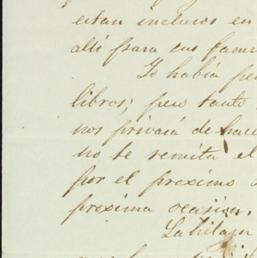 estan inclusos en
allí para sus fam
Yo había pe
libros; pero tanto
nos privará de hace
no se remita el
por el proximo
proxima ocasion.
La